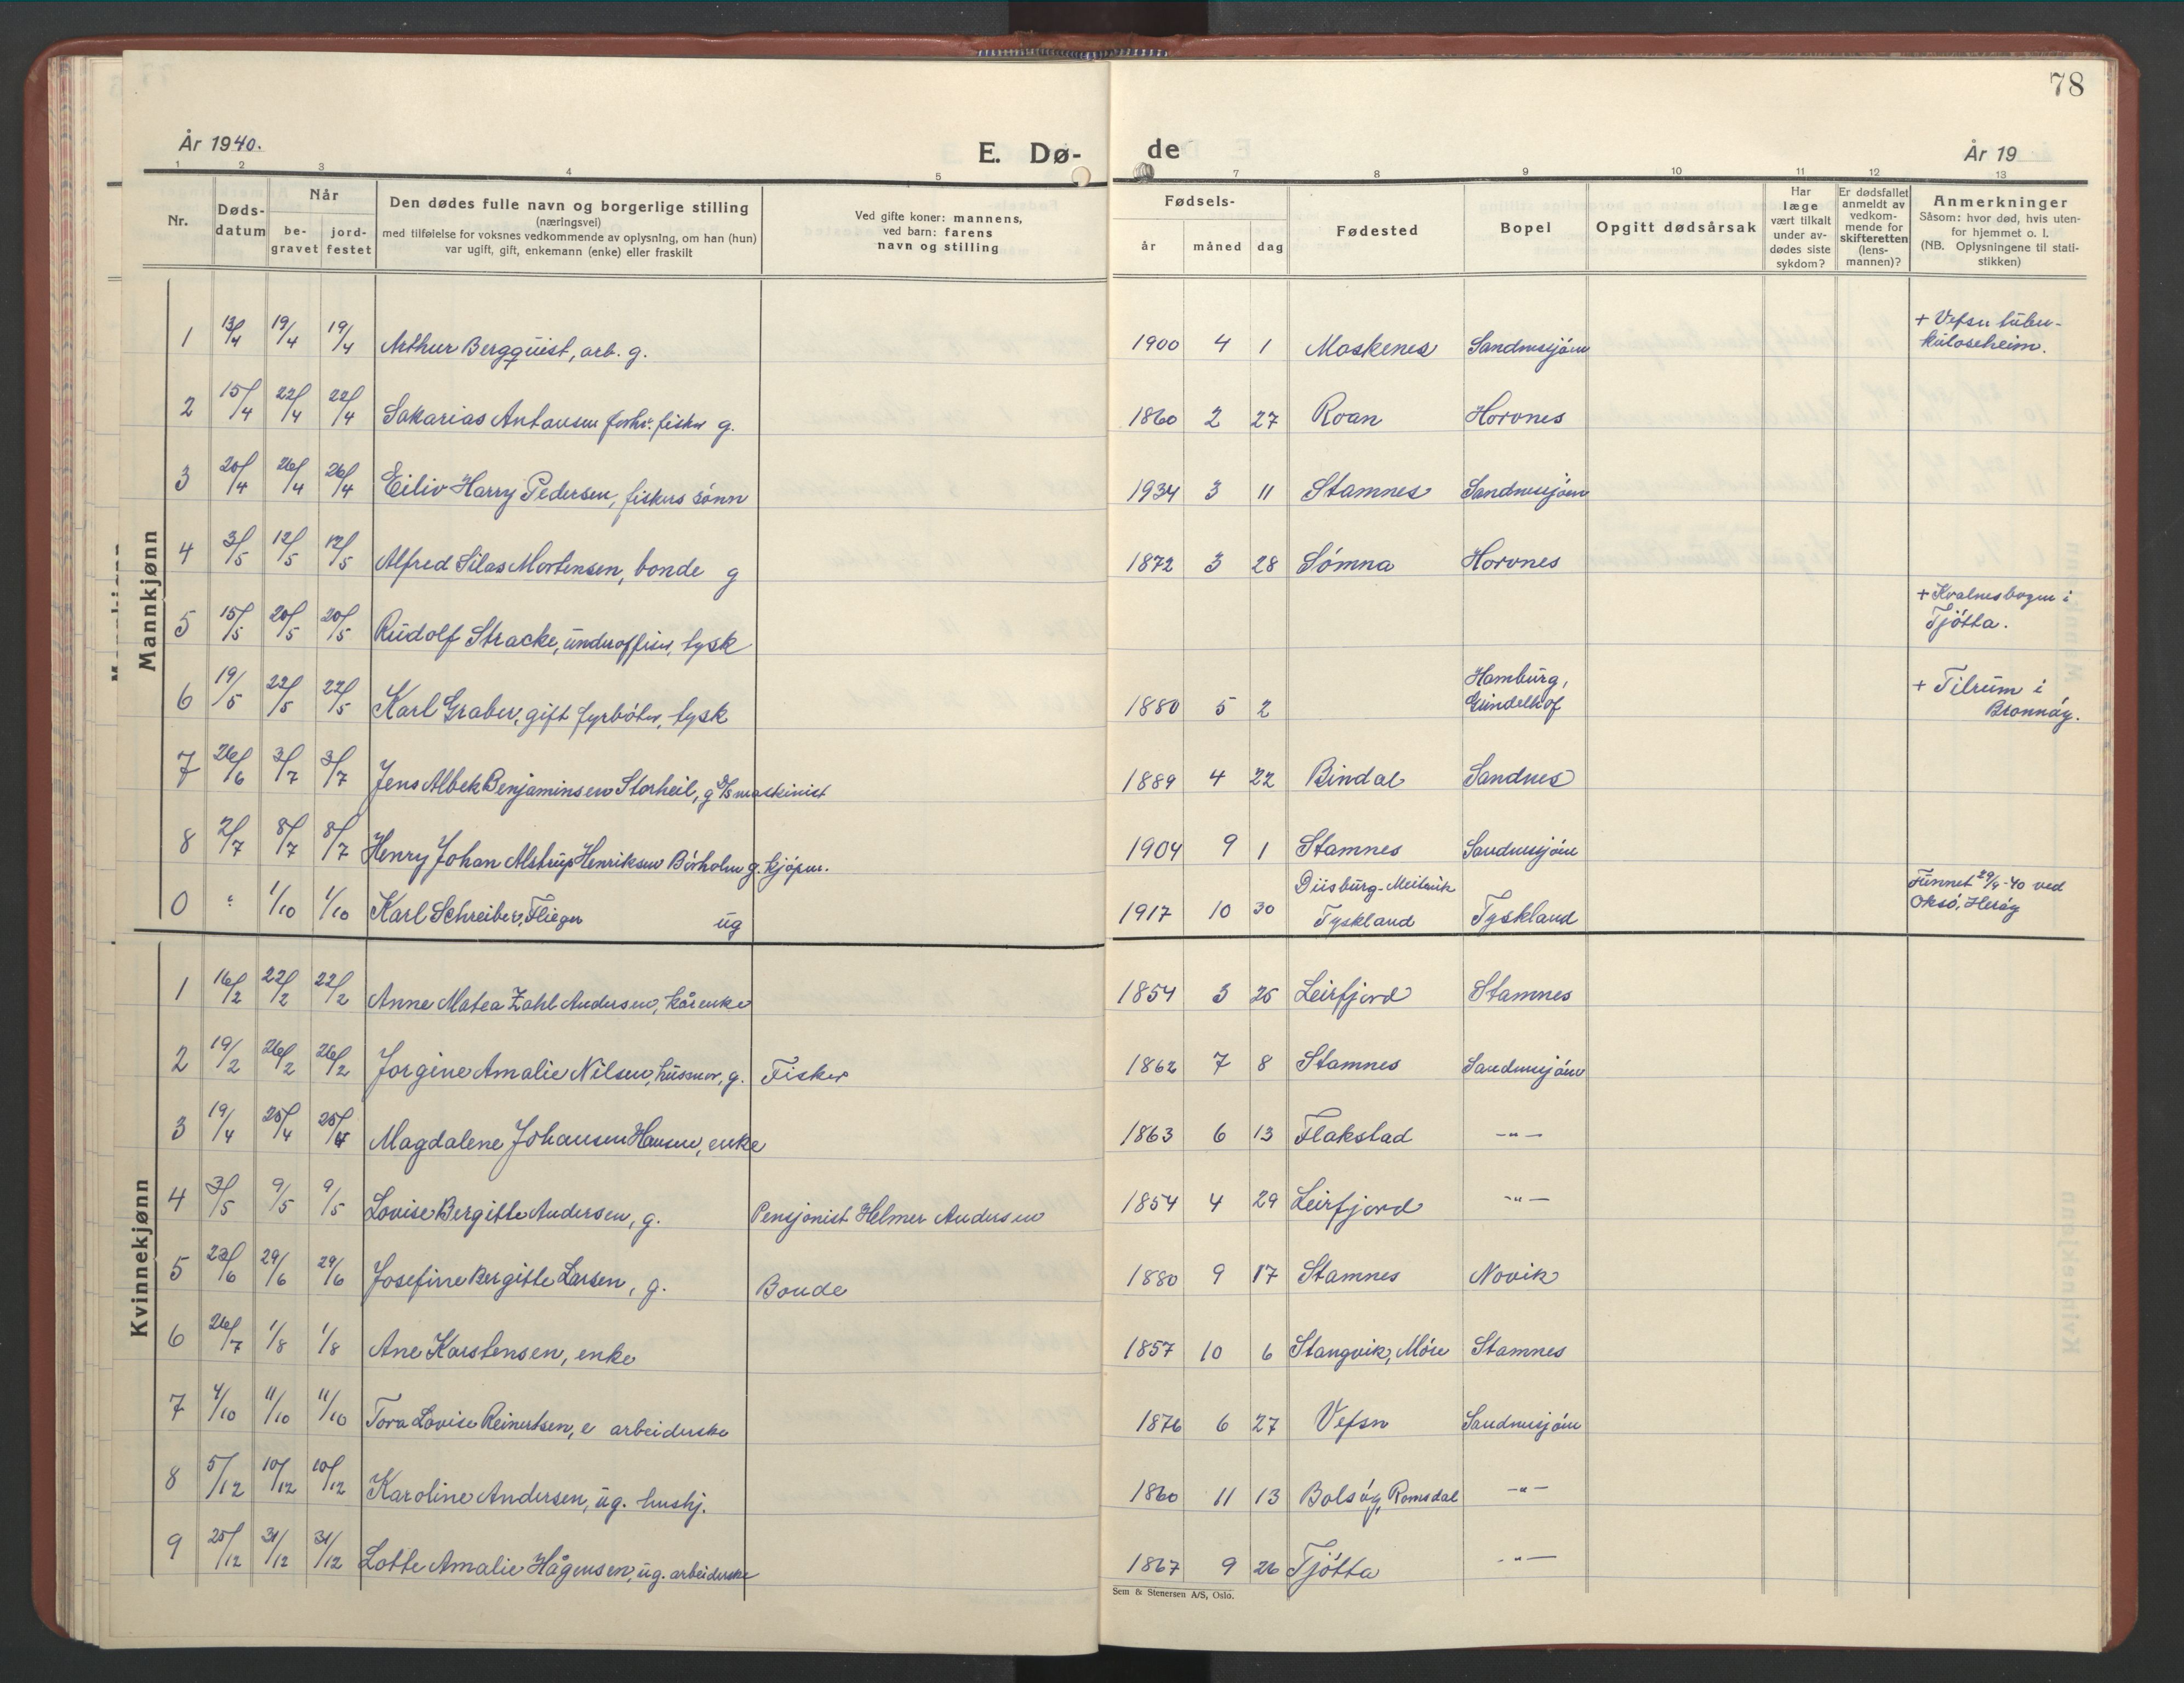 78
År 1940.
E. Dø-
de
År 19
1 2 3 4 5
7 8 9 10 11 12 13
Nr.
Døds-
datum
Når
be-
gravet
jord-
festet
Den dødes fulle navn og borgerlige stilling
(næringsvei)
med tilføielse for voksnes vedkommende av oplysning, om han (hun)
var ugift, gift, enkemann (enke) eller fraskilt
Ved gifte koner: mannens,
ved barn: farens
navn og stilling
Fødsels-
år måned dag
Fødested
Bopel
Opgitt dødsårsak
Har
læge
vært tilkalt
under av-
dødes siste
sykdom?
Er dødsfallet
anmeldt av
vedkom-
mende for
skifteretten
(lens-
mannen)?
Anmerkninger
Såsom: hvor død, hvis uten-
for hjemmet o. l.
(NB. Oplysningene til stati-
stikken)
Mannkjønn
1 13/4 19/4 19/4 Arthur Bergquist, arb. g. 1900 4 1 Moskenes Sandnessjøen + Vefsn tuber-
kuloseheim.
2 15/4 22/4 22/4 Sakarias Antonsen forhv. fisker g. 1860 2 27 Roan Horvnes
3 20/4 26/4 26/4 Eiliv Harry Pedersen, fiskers sønn 1934 3 11 Stamnes Sandnessjøen
4 3/5 12/5 12/5 Alfred Silas Mortensen, bonde g 1872 3 28 Sømna Horvnes
5 15/5 20/5 20/5 Rudolf Stracke, underoffiser, tysk + Kvalnesbogen i
Tjøtta.
6 19/5 22/5 22/5 Karl Graber, gift fyrbøter, tysk 1880 5 2 Hamburg,
Gundelhof + Tilrum i
Brønnøy.
7 26/6 3/7 3/7 Jens Albek Benjaminsen Storheil, g D/S maskinist 1889 4 22 Bindal Sandnes
8 2/7 8/7 8/7 Henry Johan Alstrup Henriksen Børholm g. kjøpm. 1904 9 1 Stamnes Sandnessjøen
0 1/10 1/10 Karl Schreiber, Flieger ug 1917 10 30 Duisburg-
Tyskland Tyskland Funnet 29/9-40 ved
Oksø, Herøy
Kvinnekjønn
1 16/2 22/2 22/2 Anne Matea Zahl Andersen, kårenke 1854 3 25 Leirfjord Stamnes
2 19/2 26/2 26/2 Jorgine Amalie Nilsen, husmor, g. Fisker 1862 7 8 Stamnes Sandnessjøen
3 19/4 25/4 25/4 Magdalene Johansen Hansen, enke 1863 6 13 Flakstad -"-
4 3/5 9/5 9/5 Lovise Bergitte Andersen, g. Pensjonist Helmer Andersen 1854 4 29 Leirfjord -"-
5 23/6 29/6 29/6 Josefine Bergitte Larsen, g. Bonde 1880 9 17 Stamnes Novik
6 26/7 1/8 1/8 Ane Karstensen, enke 1857 10 6 Stangvik, Møre Stamnes
7 4/10 11/10 11/10 Tora Lovise Reinertsen, e arbeiderske 1876 6 27 Vefsn Sandnessjøen
8 5/12 10/12 10/12 Karoline Andersen, ug. hushj. 1860 11 13 Bolsøy, Romsdal -"-
9 25/12 31/12 31/12 Lotte Amalie Hågensen, ug. arbeiderske 1867 9 26 Tjøtta -"-
Sem & Stenersen A/S, Oslo.